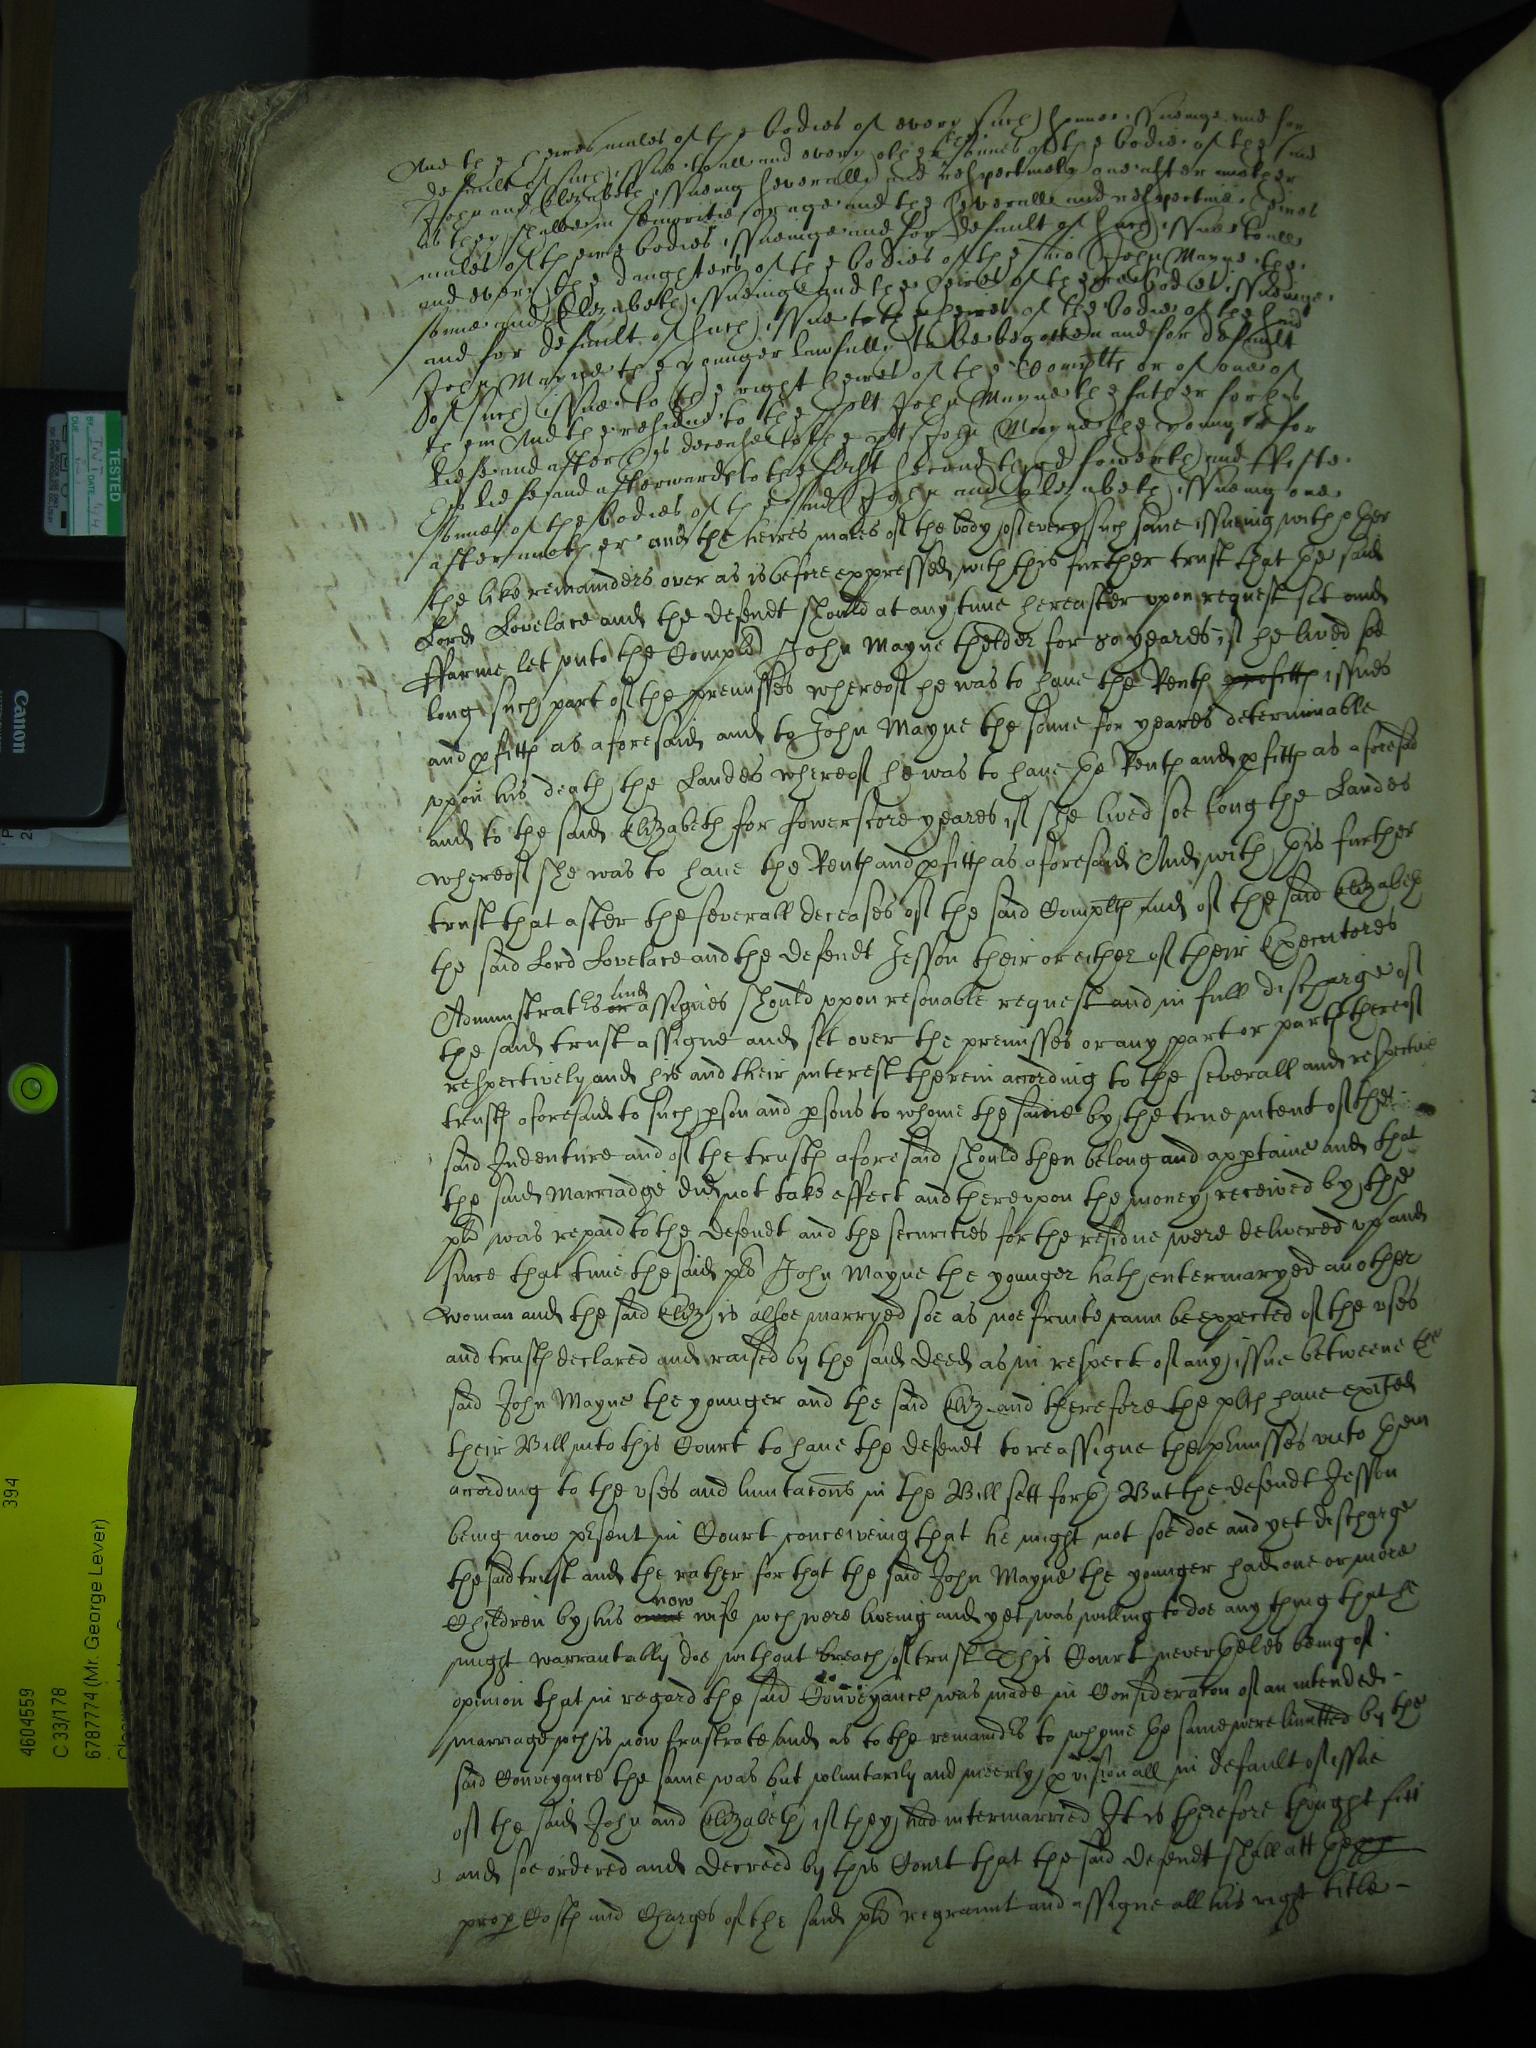 And the heires males of the bodies of every such sonne issueinge and for
default of such issue to all and every other the sonnes of the bodie of the said
John and Elizabeth issueing severally and respectively one after another
as they shalbe in senioritie of age and the severall and respective heires
males of theire bodies issueinge and for default of such issue to all
and every the daughters of the bodies of the said John Mayne the
sonne and Elizabeth issueinge and the heires of theire bodies issueinge
and for default of such issue to the heires of the bodie of the said
John Mayne the younger lawfully to be begotten and for default
of such issue to the right heires of the Complts or of one of
them And the residue to the plt John Mayne the father for his
liefe and after his decease to the plt John Mayne the younger for
his liefe and afterwards to the first second third fowerth and ffifte
sonnes of the bodies of the said John and Elizabeth issueing one
after another and the heires males of the body of every such sonne issueing with
the like remainders over as is before expressed with this further trust that the said
Lord Lovelace and the defendt should at any time hereafter upon request set and
ffarme let unto the Complt John Mayne thelder for 80 yeares if he lived soe
long such part of the premisses whereof he was to have the Rents profitts issues
and pfitts as aforesaid and to John Mayne the sonne for yeares determinable
upon his death the Landes whereof he was to have the Rents and pfitts as aforesaid
and to the said Elizabeth for fowerscore yeares if she lived soe long the Landes
whereof she was to have the Rents and pfitts as aforesaid And with this further
trust that after the severall deceases of the said Complts and of the said Elizabeth
the said Lord Lovelace and the defendt Jesson their or either of their Executores
Administrators or and assignes should upon resonable request and in full discharge of
the said trust assigne and set over the premisses or any part or parts thereof
respectively and his and their interest therein according to the severall and respective
trusts aforesaid to such pson and psons to whome the same by the true intent of the
said Indenture and of the trusts aforesaid should then belong and appertaine and that
the said Marriadge did not take effect and thereupon the money received by the
plt was repaid to the defendt and the securities for the residue were delivered up and
since that time the said plt John Mayne the younger hath entermaryed another
woman and the said Eliz is alsoe marryed soe as noe fruite cann be expected of the uses
and trusts declared and raised by the said Deed as in respect of any issue betweene the
said John Mayne the younger and the said Eliz and therefore the plts have exited
their Bill into this Court to have the defendt to reassigne the pmisses unto them
according to the uses and limitacons in the Bill sett forth But the defendt Jesson
being now psent in Court conceiveing that he might not soe doe and yet discharge
the said trust and the rather for that the said John Mayne the younger had one or more
Children by his now wife wch were liveing and yet was willing to doe any thing that he
might warrantally doe without breach of trust This Court neverthelesse being of
opinion that in regard the said Conveyance was made in Consideracon of an intended
marriage wch is now frustrate and as to the remainders to whome the same were limitted by the
said Conveyance the same was but voluntarily and meerly pvisionall in default of issue
of the said John and Elizabeth if they had intermarried It is therefore thought fitt
and soe ordered and decreed by this Court that the said defendt shall att the
proper Costs and Charges of the said plt regrannt and assigne all his right title
TESTED
Canon
394
4604559
C 33/178
6787774 (Mr. George Lever)